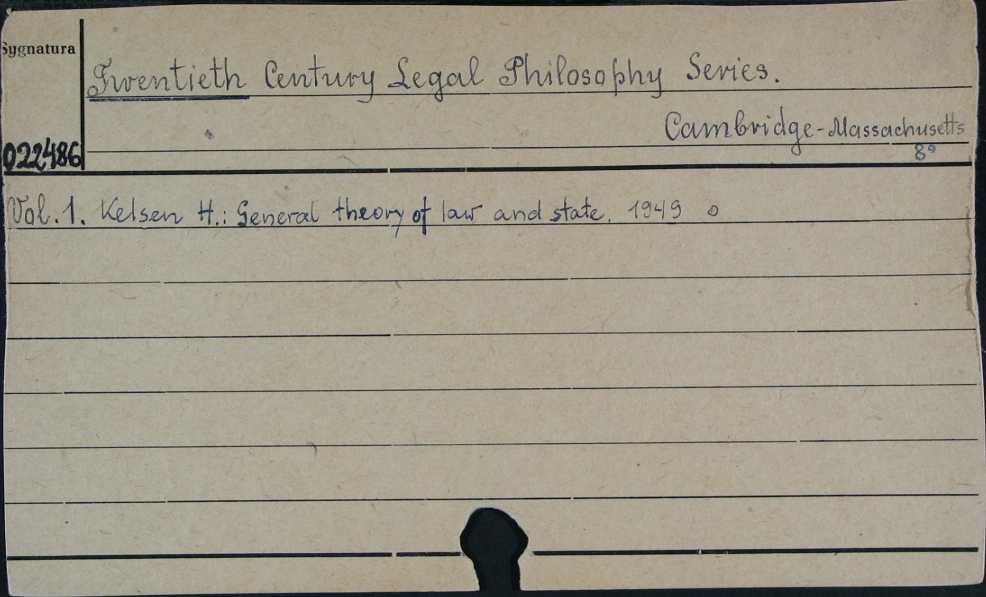 Sygnatura
Twentieth Century Legal Philosophy Series.
Cambridge-Massachusetts
022486
8°
Vol. 1. Kelsen H.: General theory of law and state. 1949